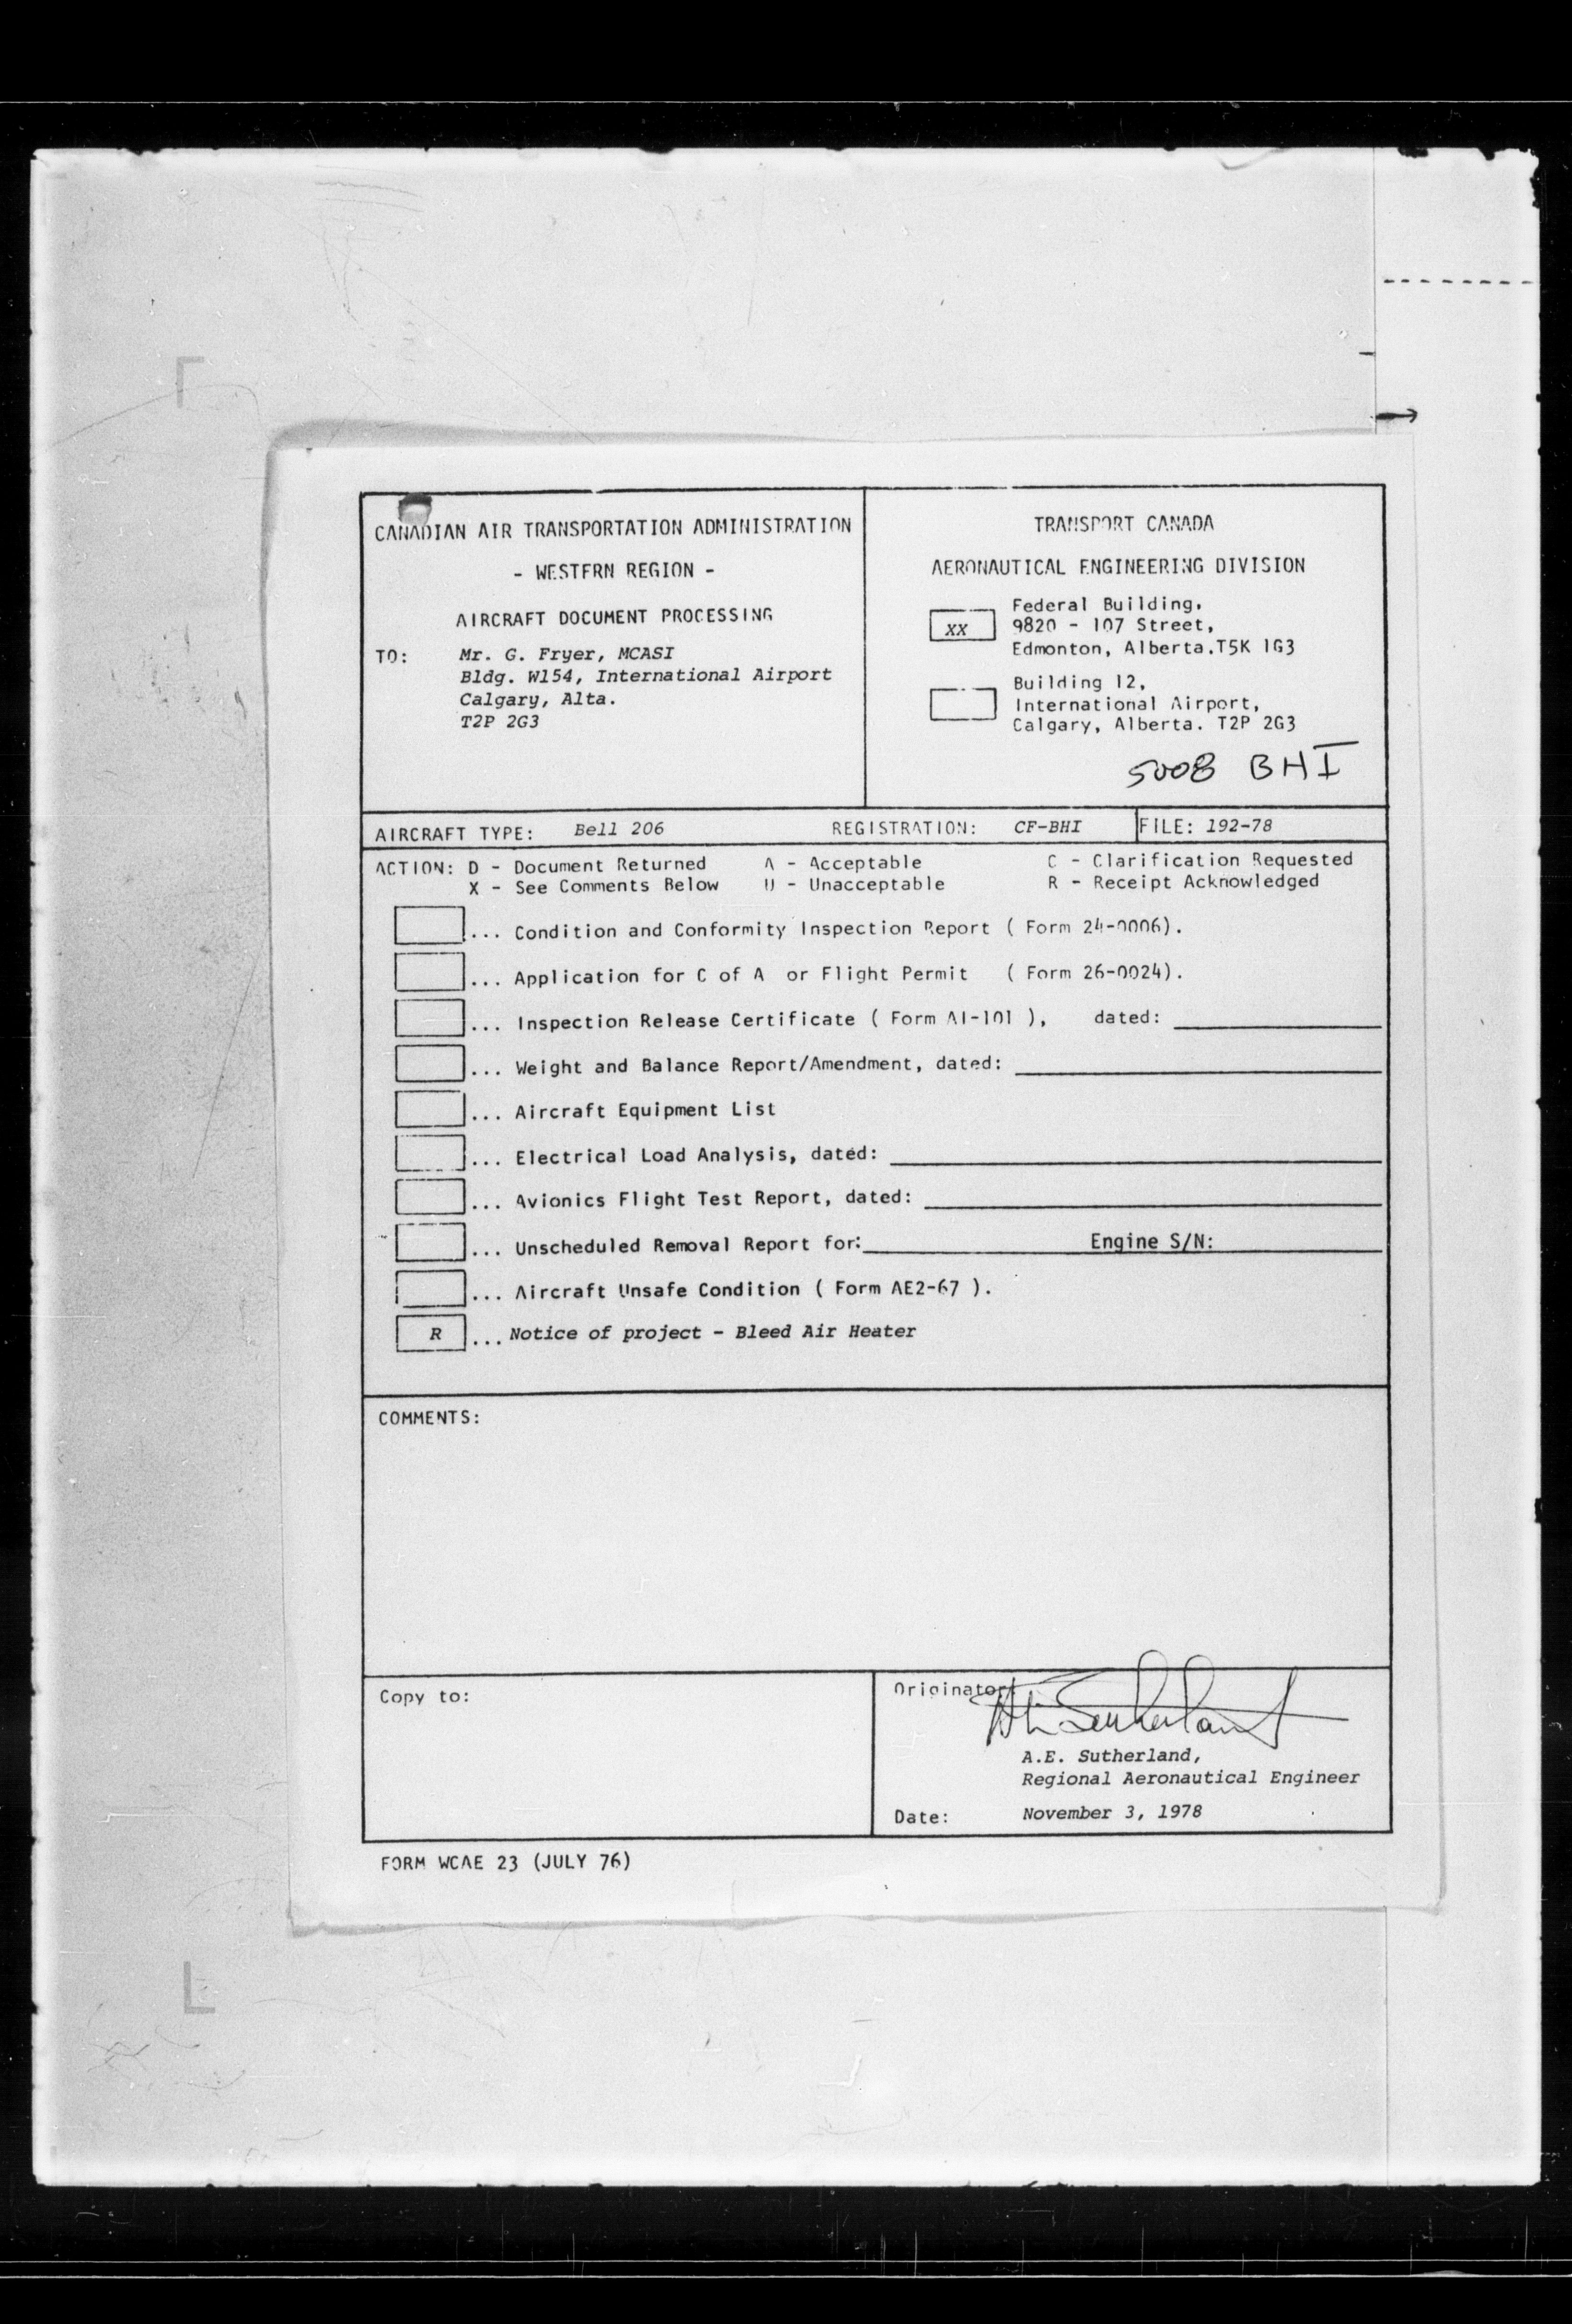 CANADIAN AIR TRANSPORTATION ADMINISTRATION
- WESTERN REGION -
AIRCRAFT DOCUMENT PROCESSING
TO: Mr. G. Fryer, MCASI
Bldg. W154, International Airport
Calgary, Alta.
T2P 2G3
TRANSPORT CANADA
AERONAUTICAL ENGINEERING DIVISION
Federal Building,
XX 9820 - 107 Street,
Edmonton, Alberta.T5K 1G3
Building 12,
International Airport,
Calgary, Alberta. T2P 2G3
5008 BHI
AIRCRAFT TYPE: Bell 206 REGISTRATION: CF-BHI FILE: 192-78
ACTION: D - Document Returned A - Acceptable C - Clarification Requested
X - See Comments Below U - Unacceptable R - Receipt Acknowledged
... Condition and Conformity Inspection Report ( Form 24-0006).
... Application for C of A or Flight Permit ( Form 26-0024).
... Inspection Release Certificate ( Form AI-101 ), dated:
... Weight and Balance Report/Amendment, dated:
... Aircraft Equipment List
... Electrical Load Analysis, dated:
... Avionics Flight Test Report, dated:
... Unscheduled Removal Report for: Engine S/N:
... Aircraft Unsafe Condition ( Form AE2-67 ).
R ... Notice of project - Bleed Air Heater
COMMENTS:
Copy to:
Originator:
A.E. Sutherland,
Regional Aeronautical Engineer
Date: November 3, 1978
FORM WCAE 23 (JULY 76)